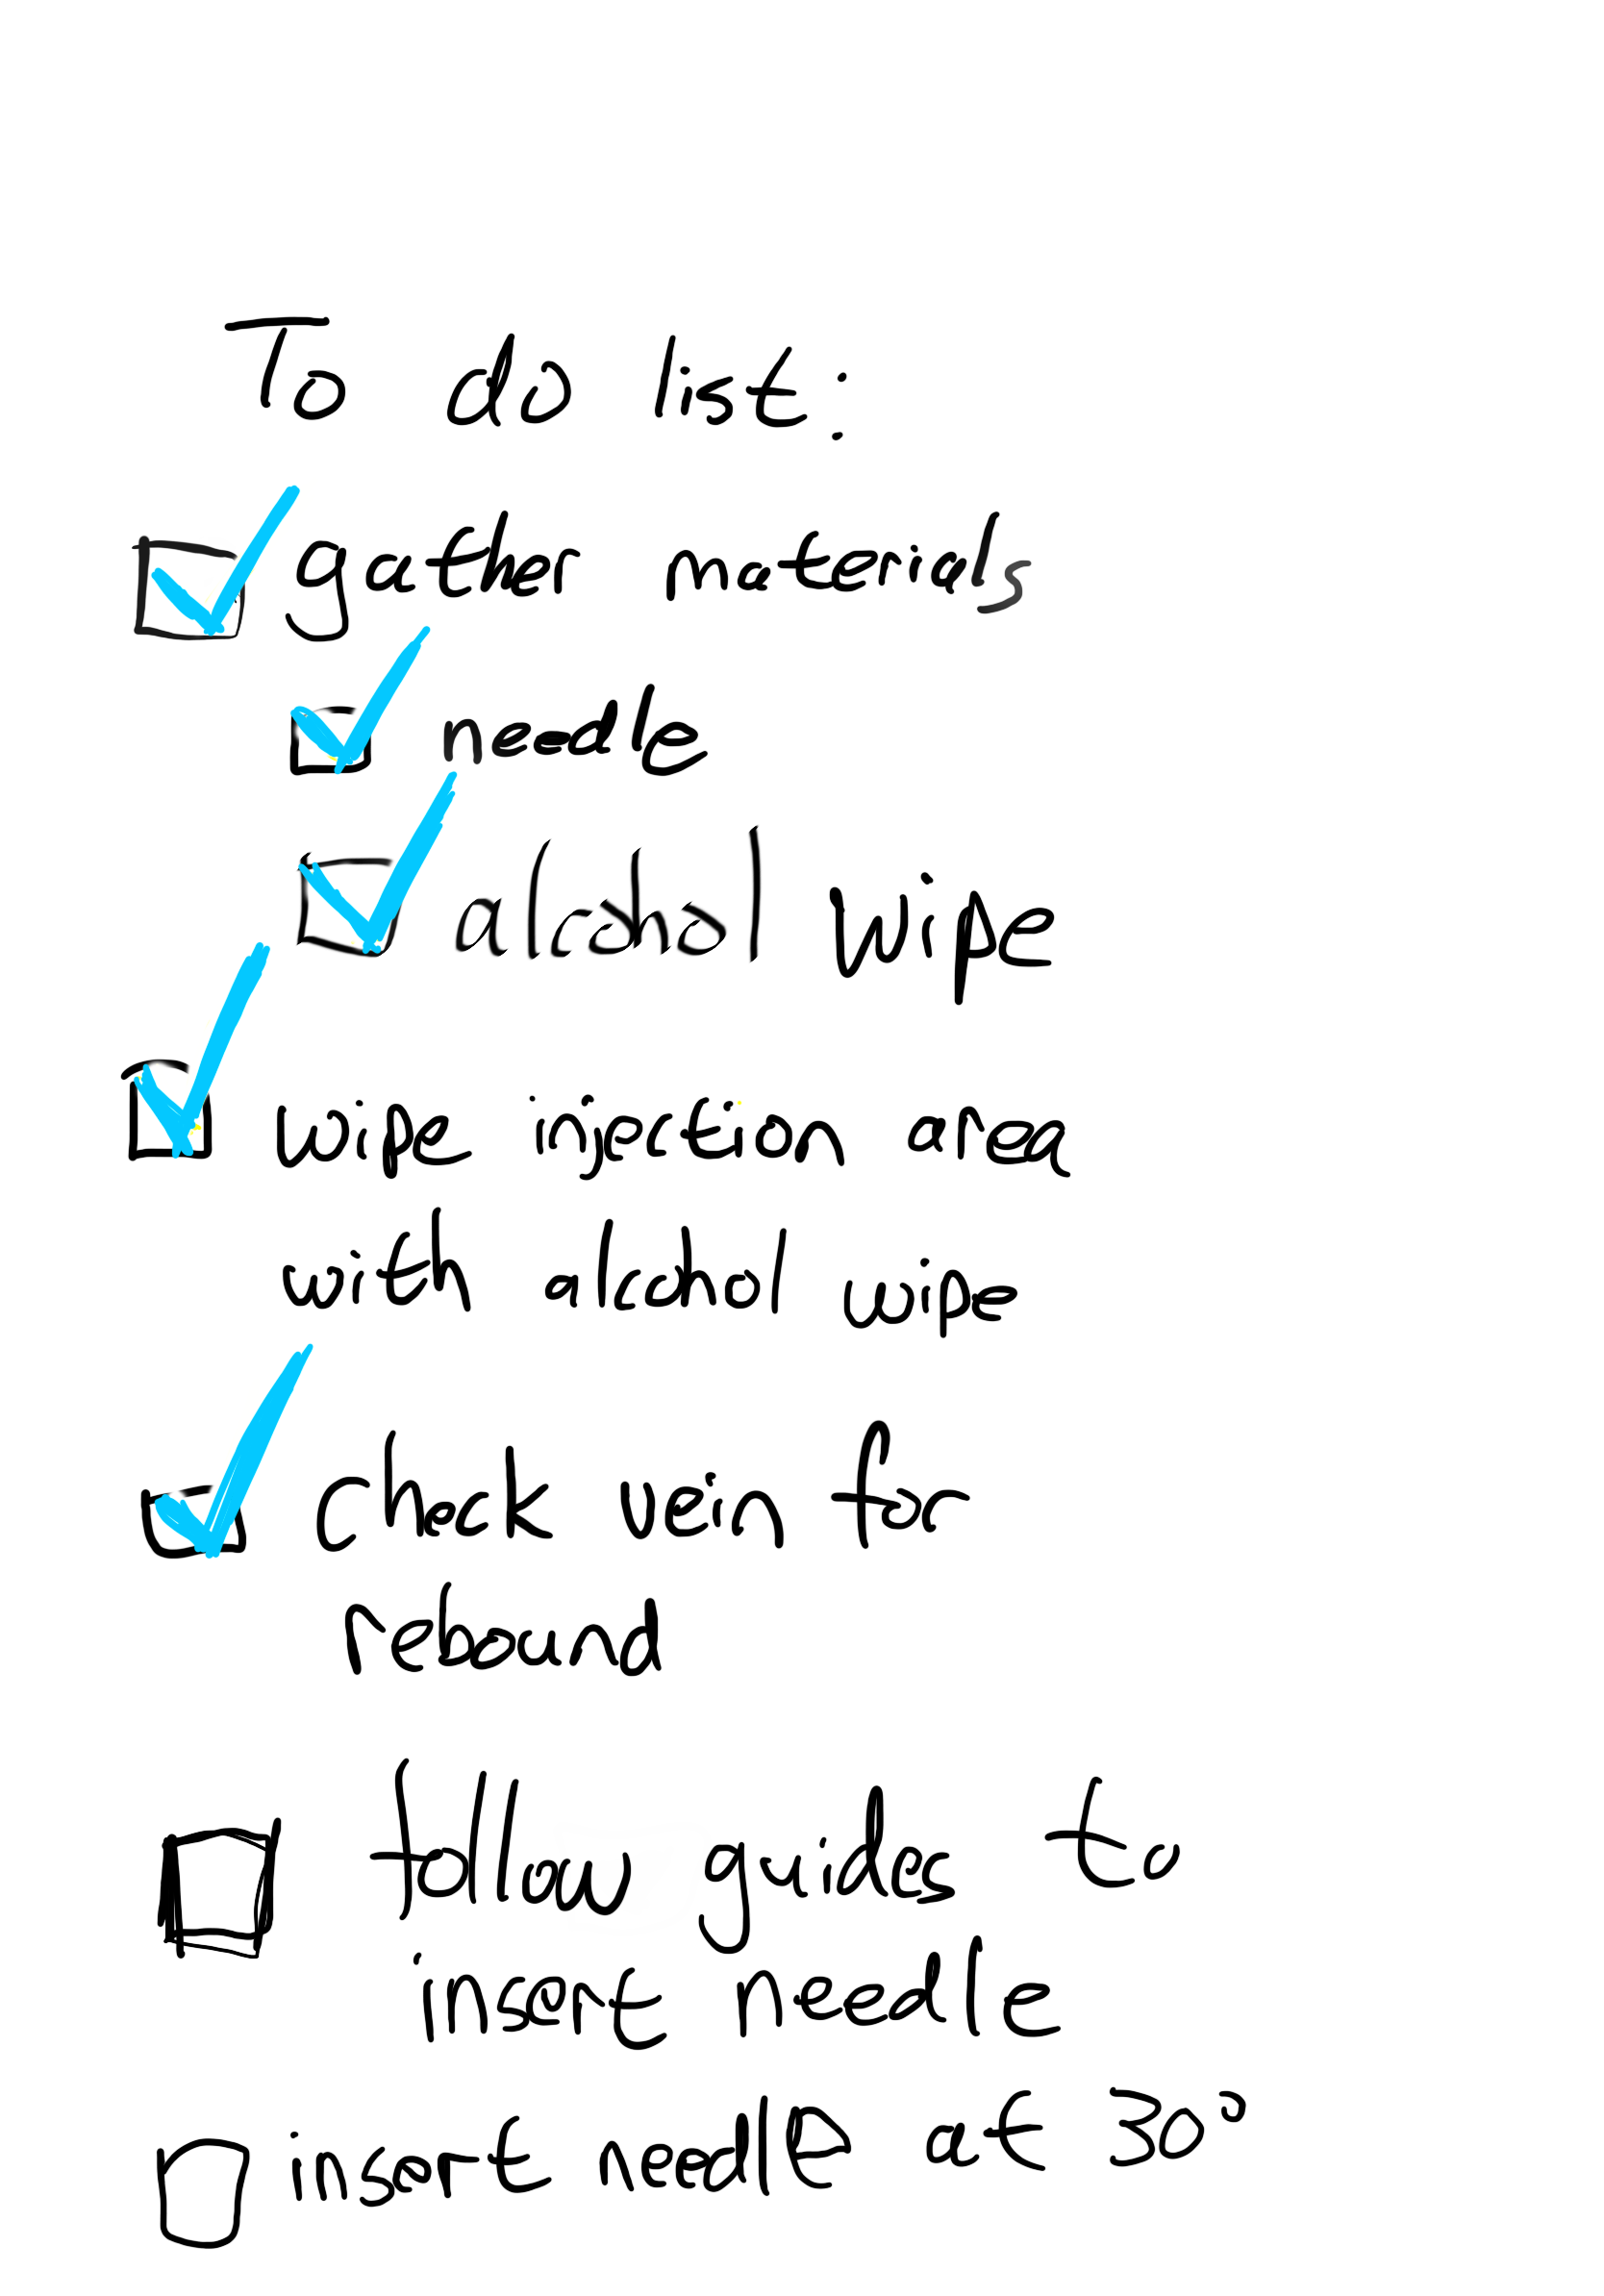 To do list:
gather materials
needle
alcohol wipe
wipe injection area
with alcohol wipe
check vein for
rebound
follow guides to
insert needle
insert needle at 30°